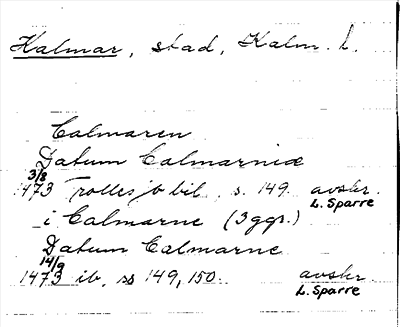 Kalmar, stad, Kalm. l.
Calmaren
Datum Calmarniæ
3/8
1473 Trolles jb bil. s. 149. avskr.
L. Sparre
i Calmarne (3 ggr.)
Datum Calmarne
14/9
1473 ib. ss 149, 150. avskr.
L. Sparre